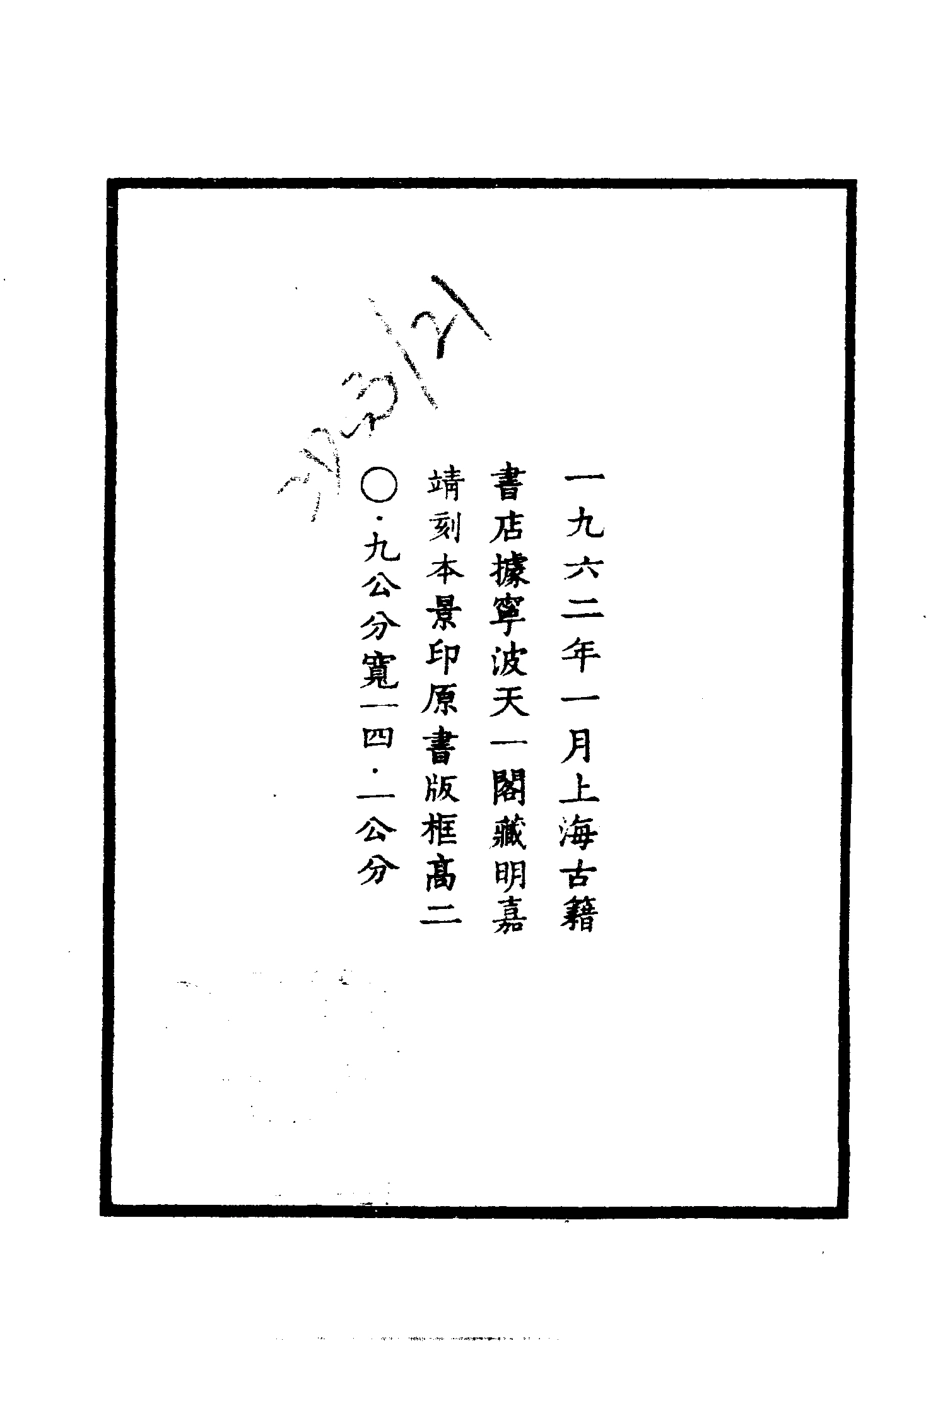 一九六二年一月上海古籍
書店據寧波天一閣藏明嘉
靖刻本景印原書版框高二
〇·九公分寬一四·一公分